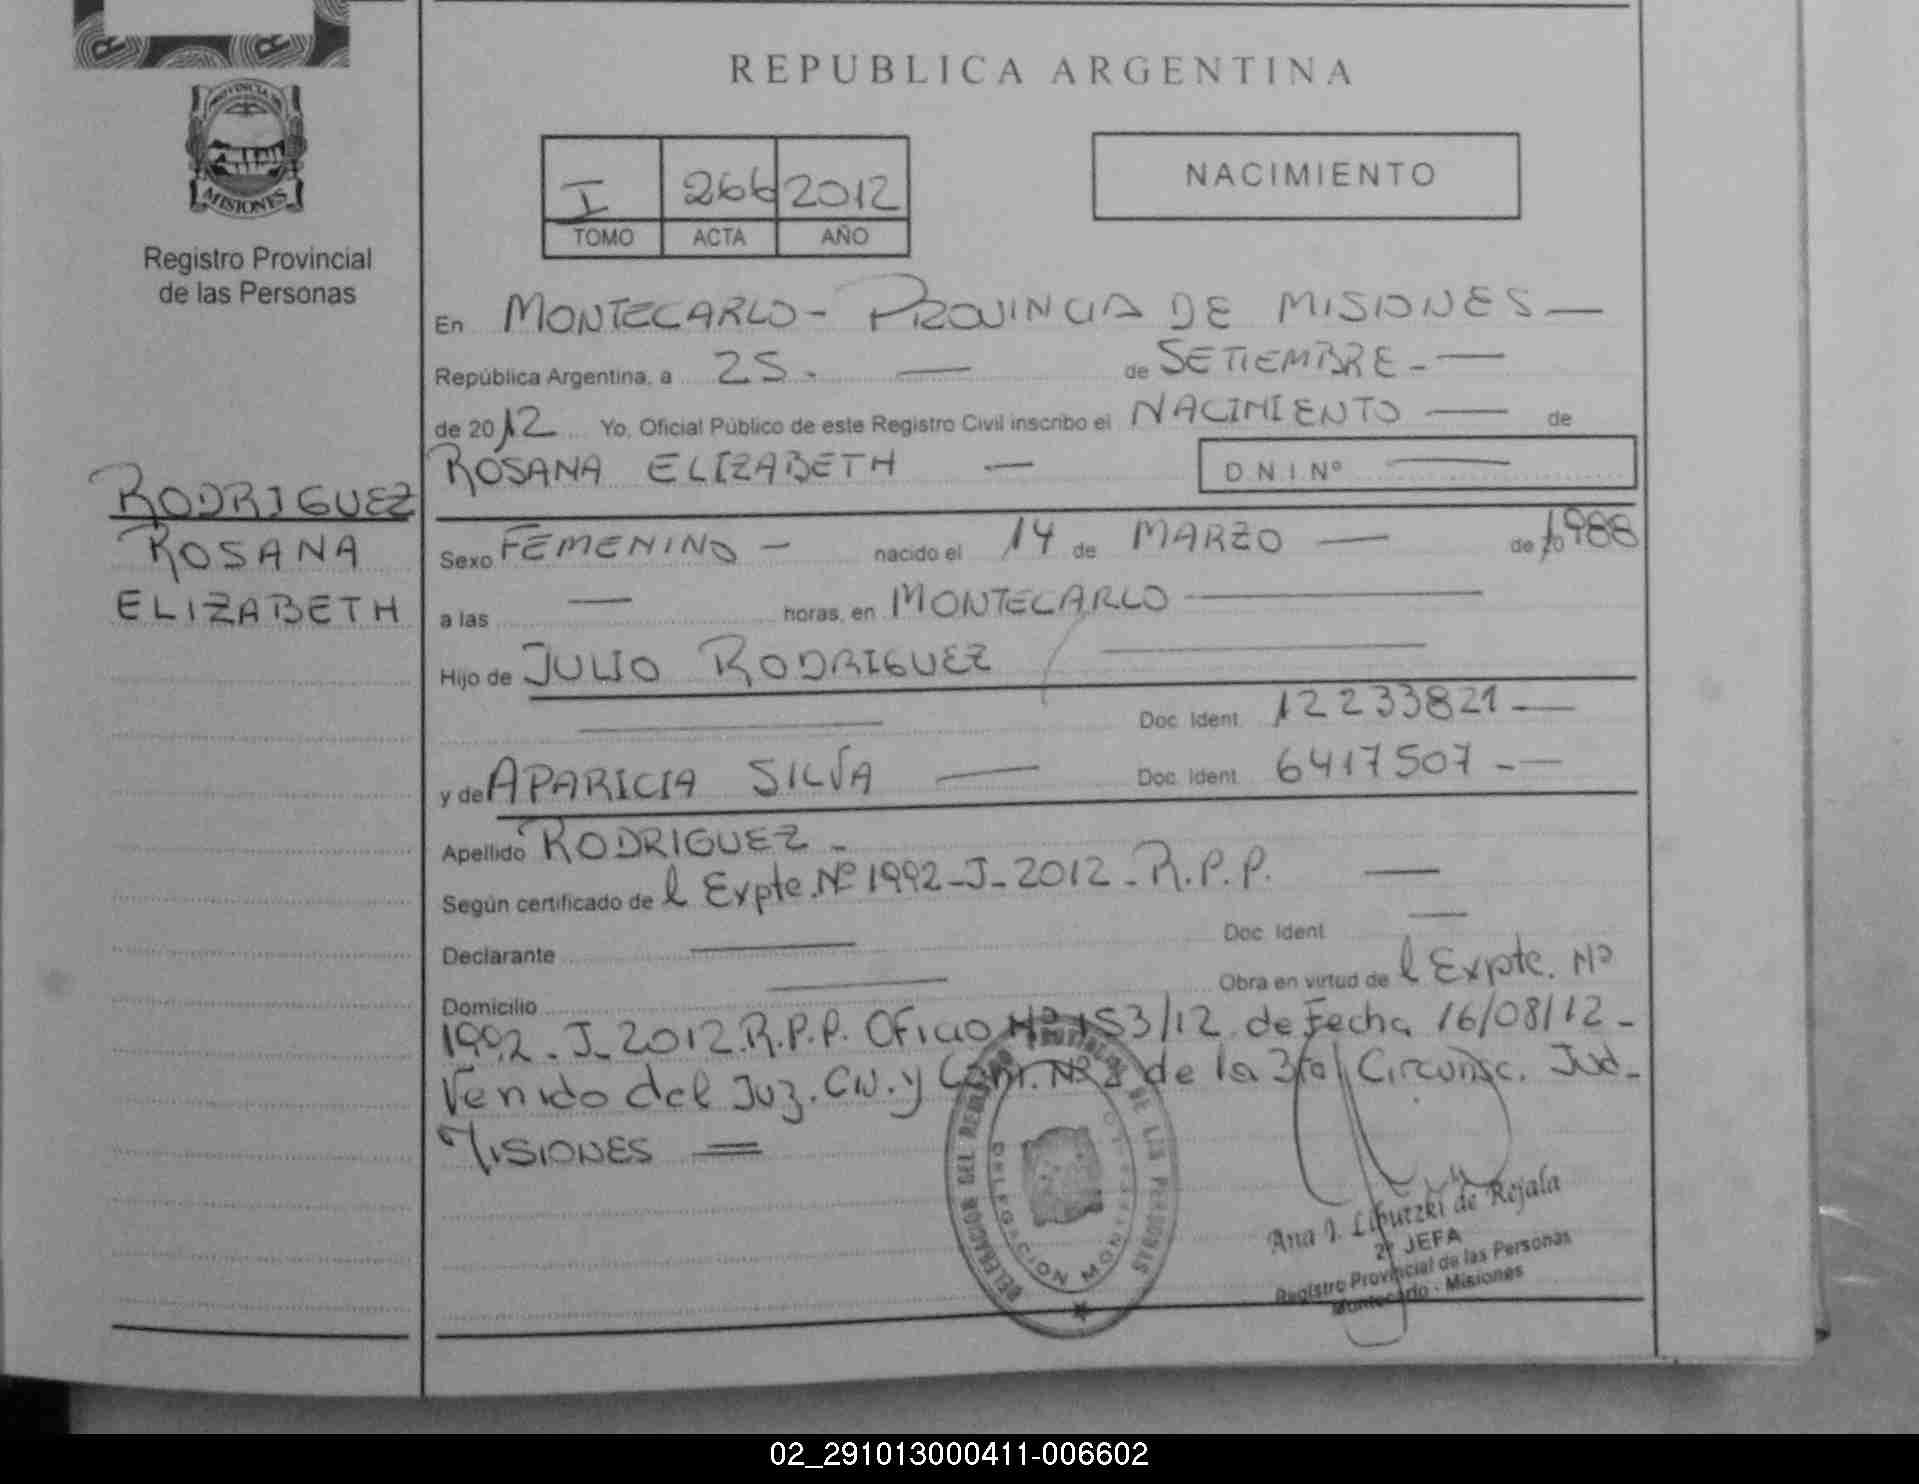 PROVINCIA DE
MISIONES
Registro Provincial
de las Personas
RODRIGUEZ
ROSANA
ELIZABETH
REPUBLICA ARGENTINA
I 266 2012
TOMO ACTA AÑO
NACIMIENTO
En MONTECARLO - PROVINCIA DE MISIONES —
República Argentina, a 25. — de SETIEMBRE - —
de 2012 Yo, Oficial Público de este Registro Civil inscribo el NACIMIENTO — de
ROSANA ELIZABETH — D.N.I. Nº —
Sexo FEMENINO - nacido el 14 de MARZO — de 1988
a las — horas, en MONTECARLO —
Hijo de JULIO RODRIGUEZ —
— Doc. Ident. 12233821 - —
y de APARICIA SILVA — Doc. Ident. 6417507 - —
Apellido RODRIGUEZ -
Según certificado de l Expte. Nº 1992-J-2012-R.P.P. —
Declarante — Doc. Ident. —
Domicilio — Obra en virtud de l Expte. Nº
1992-J-2012.R.P.P. Oficio Nº 153/12 de Fecha 16/08/12 -
Venido del Juz. Civ. y Com. Nº de la 3ra Circunsc. Jud-
MISIONES =
DELEGACION MONTECARLO
DE LAS PERSONAS
Ana J. de Rejala
2º JEFA
Registro Provincial de las Personas
Montecarlo - Misiones
02_291013000411-006602